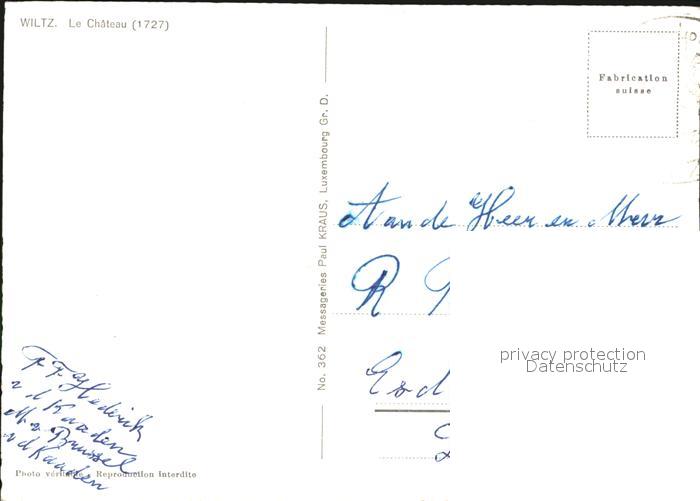 WILTZ. Le Château (1727)
Fabrication
suisse
No. 362 Messageries Paul KRAUS, Luxembourg Gr. D.
Aan de Heer en Mevr
R
privacy protection
Datenschutz
v d Kaaden
Brussel
v d Kaaden
Photo véritable - Reproduction interdite